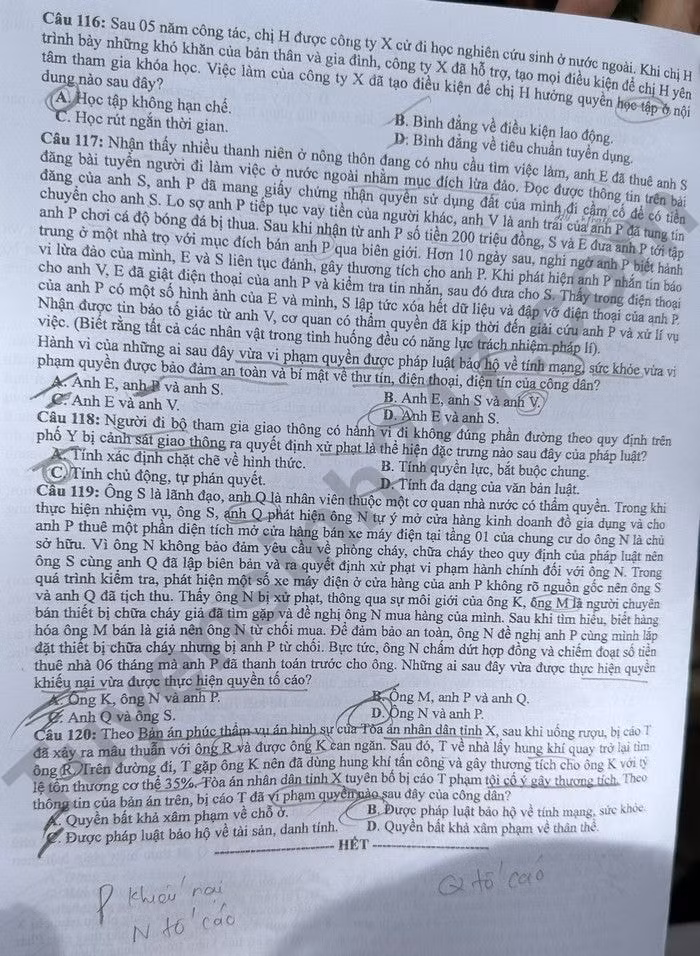 Câu 116: Sau 05 năm công tác, chị H được công ty X cử đi học nghiên cứu sinh ở nước ngoài. Khi chị H
trình bày những khó khăn của bản thân và gia đình, công ty X đã hỗ trợ, tạo mọi điều kiện để chị H yên
tâm tham gia khóa học. Việc làm của công ty X đã tạo điều kiện để chị H hưởng quyền học tập ở nội
dung nào sau đây?
A. Học tập không hạn chế.
B. Bình đẳng về điều kiện lao động.
C. Học rút ngắn thời gian.
D. Bình đẳng về tiêu chuẩn tuyển dụng.
Câu 117: Nhận thấy nhiều thanh niên ở nông thôn đang có nhu cầu tìm việc làm, anh E đã thuê anh S
đăng bài tuyển người đi làm việc ở nước ngoài nhằm mục đích lừa đảo. Đọc được thông tin trên bài
đăng của anh S, anh P đã mang giấy chứng nhận quyền sử dụng đất của mình đi cầm cố để có tiền
chuyển cho anh S. Lo sợ anh P tiếp tục vay tiền của người khác, anh V là anh trai của anh P đã tung tin
anh P chơi cá độ bóng đá bị thua. Sau khi nhận từ anh P số tiền 200 triệu đồng, S và E đưa anh P tới tập
trung ở một nhà trọ với mục đích bán anh P qua biên giới. Hơn 10 ngày sau, nghi ngờ anh P biết hành
vi lừa đảo của mình, E và S liên tục đánh, gây thương tích cho anh P. Khi phát hiện anh P nhắn tin báo
cho anh V, E đã giật điện thoại của anh P và kiểm tra tin nhắn, sau đó đưa cho S. Thấy trong điện thoại
của anh P có một số hình ảnh của E và mình, S lập tức xóa hết dữ liệu và đập vỡ điện thoại của anh P.
Nhận được tin báo tố giác từ anh V, cơ quan có thẩm quyền đã kịp thời đến giải cứu anh P và xử lí vụ
việc. (Biết rằng tất cả các nhân vật trong tình huống đều có năng lực trách nhiệm pháp lí).
Hành vi của những ai sau đây vừa vi phạm quyền được pháp luật bảo hộ về tính mạng, sức khỏe vừa vi
phạm quyền được bảo đảm an toàn và bí mật về thư tín, điện thoại, điện tín của công dân?
A. Anh E, anh P và anh S.
B. Anh E, anh S và anh V.
C. Anh E và anh V.
D. Anh E và anh S.
Câu 118: Người đi bộ tham gia giao thông có hành vi đi không đúng phần đường theo quy định trên
phố Y bị cảnh sát giao thông ra quyết định xử phạt là thể hiện đặc trưng nào sau đây của pháp luật?
A. Tính xác định chặt chẽ về hình thức.
B. Tính quyền lực, bắt buộc chung.
C. Tính chủ động, tự phán quyết.
D. Tính đa dạng của văn bản luật.
Câu 119: Ông S là lãnh đạo, anh Q là nhân viên thuộc một cơ quan nhà nước có thẩm quyền. Trong khi
thực hiện nhiệm vụ, ông S, anh Q phát hiện ông N tự ý mở cửa hàng kinh doanh đồ gia dụng và cho
anh P thuê một phần diện tích mở cửa hàng bán xe máy điện tại tầng 01 của chung cư do ông N là chủ
sở hữu. Vì ông N không bảo đảm yêu cầu về phòng cháy, chữa cháy theo quy định của pháp luật nên
ông S cùng anh Q đã lập biên bản và ra quyết định xử phạt vi phạm hành chính đối với ông N. Trong
quá trình kiểm tra, phát hiện một số xe máy điện ở cửa hàng của anh P không rõ nguồn gốc nên ông S
và anh Q đã tịch thu. Thấy ông N bị xử phạt, thông qua sự môi giới của ông K, ông M là người chuyên
bán thiết bị chữa cháy giả đã tìm gặp và đề nghị ông N mua hàng của mình. Sau khi tìm hiểu, biết hàng
hóa ông M bán là giả nên ông N từ chối mua. Để đảm bảo an toàn, ông N đề nghị anh P cùng mình lắp
đặt thiết bị chữa cháy nhưng bị anh P từ chối. Bực tức, ông N chấm dứt hợp đồng và chiếm đoạt số tiền
thuê nhà 06 tháng mà anh P đã thanh toán trước cho ông. Những ai sau đây vừa được thực hiện quyền
khiếu nại vừa được thực hiện quyền tố cáo?
A. Ông K, ông N và anh P.
B. Ông M, anh P và anh Q.
C. Anh Q và ông S.
D. Ông N và anh P.
Câu 120: Theo Bản án phúc thẩm vụ án hình sự của Tòa án nhân dân tỉnh X, sau khi uống rượu, bị cáo T
đã xảy ra mâu thuẫn với ông R và được ông K can ngăn. Sau đó, T về nhà lấy hung khí quay trở lại tìm
ông R. Trên đường đi, T gặp ông K nên đã dùng hung khí tấn công và gây thương tích cho ông K với tỷ
lệ tổn thương cơ thể 35%. Tòa án nhân dân tỉnh X tuyên bố bị cáo T phạm tội cố ý gây thương tích. Theo
thông tin của bản án trên, bị cáo T đã vi phạm quyền nào sau đây của công dân?
A. Quyền bất khả xâm phạm về chỗ ở.
B. Được pháp luật bảo hộ về tính mạng, sức khỏe.
C. Được pháp luật bảo hộ về tài sản, danh tính.
D. Quyền bất khả xâm phạm về thân thể.
HẾT
P khiếu nại
N tố cáo
Q tố cáo